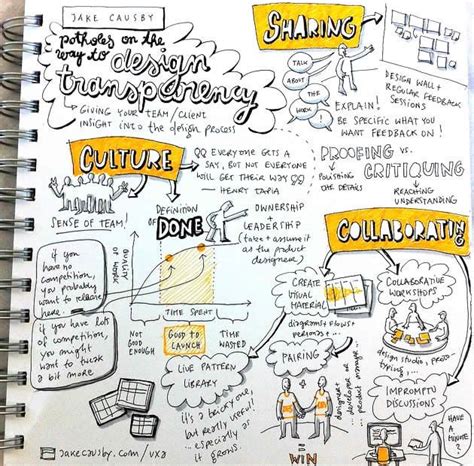 JAKE CAUSBY
potholes on the
way to design
transparency
GIVING YOUR TEAM/CLIENT
INSIGHT into the design process
SHARING
TALK
ABOUT
THE
WORK!
DESIGN WALL +
REGULAR FEEDBACK
SESSIONS
EXPLAIN!
BE SPECIFIC WHAT YOU
WANT FEEDBACK ON!
CULTURE
SENSE OF TEAM!
EVERYONE GETS A
SAY, BUT NOT EVERYONE
WILL GET THEIR WAY
— HENRY TAPIA
PROOFING vs.
CRITIQUING
POLISHING
THE DETAILS
REACHING
UNDERSTANDING
DEFINITION
OF DONE
QUALITY
OF WORK
TIME SPENT
NOT
GOOD
ENOUGH
GOOD TO
LAUNCH
TIME
WASTED
OWNERSHIP
+
LEADERSHIP
(take + assume it
as the product
designer)
if you
have no
competition,
you probably
want to release
here.
if you have lots
of competition,
you might
want to tweak
a bit more
LIVE PATTERN
LIBRARY
it's a tricky one,
but really useful!
... especially as
it grows.
COLLABORATING
CREATE
VISUAL
MATERIAL
diagrams + flows +
personas + ...
PAIRING
designer +
developer or
product manager...
= WIN
COLLABORATIVE
WORKSHOPS
design studio, proto-
typing...
IMPROMPTU
DISCUSSIONS
HAVE
A
MINUTE?
jakecausby.com/uxa